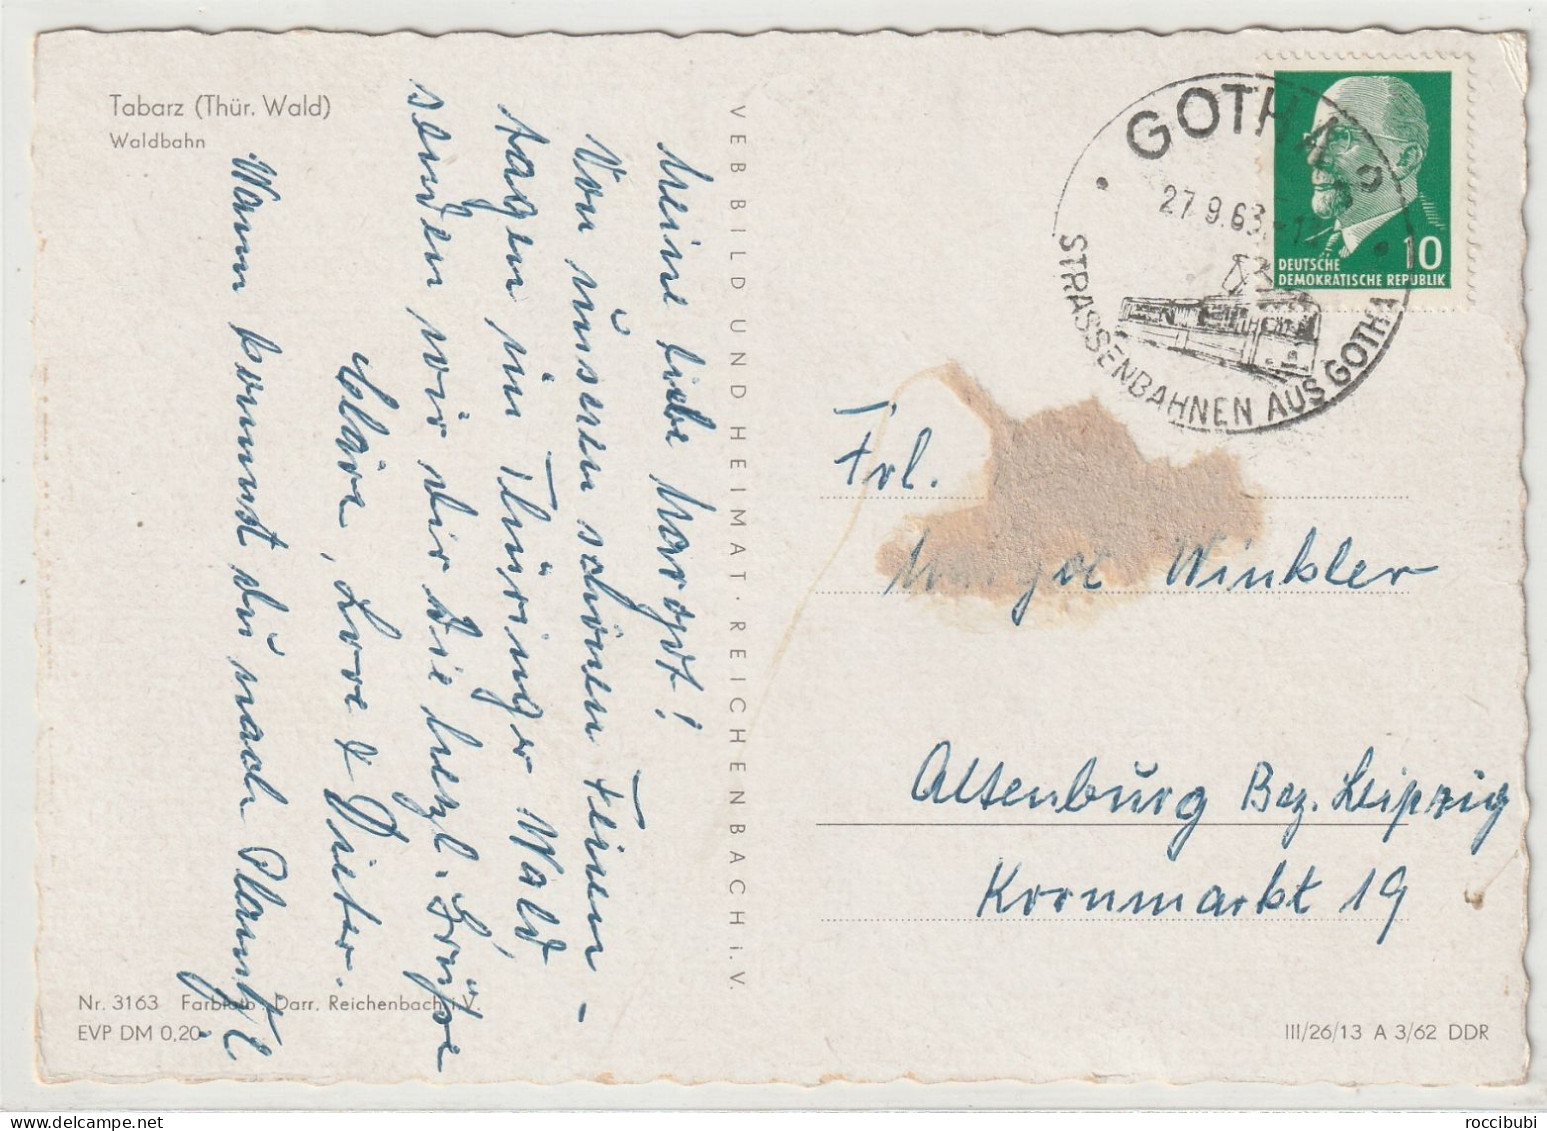 Tabarz (Thür. Wald)
Waldbahn
Meine liebe Margot!
Von unseren schönen Ferien-
tagen im Thüringer Wald,
senden wir dir die herzl. Grüße
Kläre, Lore & Dieter.
Wann kommst du nach
VEB BILD UND HEIMAT · REICHENBACH i. V.
Nr. 3163 Farbfoto: Darr, Reichenbach i. V.
EVP DM 0,20
GOTHA 2
27.9.63.-12
STRASSENBAHNEN AUS GOTHA
10
DEUTSCHE
DEMOKRATISCHE REPUBLIK
Frl.
Margot Winkler
Altenburg Bez. Leipzig
Kornmarkt 19
III/26/13 A 3/62 DDR
roccibubi